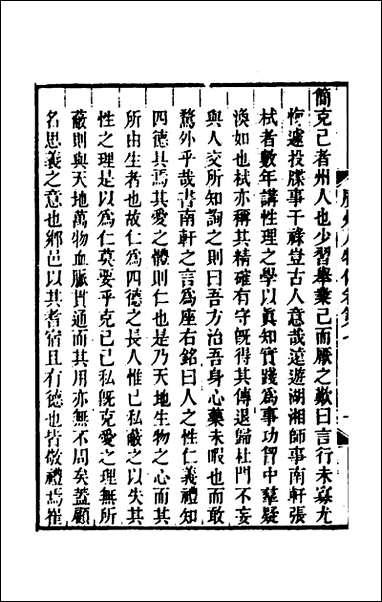 簡克己者州人也少習舉業已而厭之歎曰言行未寡尤
悔遽投牒事干祿豈古人意哉遠遊湖湘師事南軒張
栻者數年講性理之學以眞知實踐爲事功習中羣疑
渙如也栻亦稱其精確有守旣得其傳退歸杜門不妄
與人交所知詢之則曰吾方治吾身心藥未暇也而敢
騖外乎哉書南軒之言爲座右銘曰人之性仁義禮知
四德具焉其愛之體則仁也是乃天地生物之心而其
所由生者也故仁爲四德之長人惟已私蔽之以失其
性之理是以爲仁莫要乎克己己私旣克愛之理無所
蔽則與天地萬物血脈貫通而其用亦無不周矣蓋顧
名思義之意也鄉邑以其耆宿且有德也皆敬禮焉崔